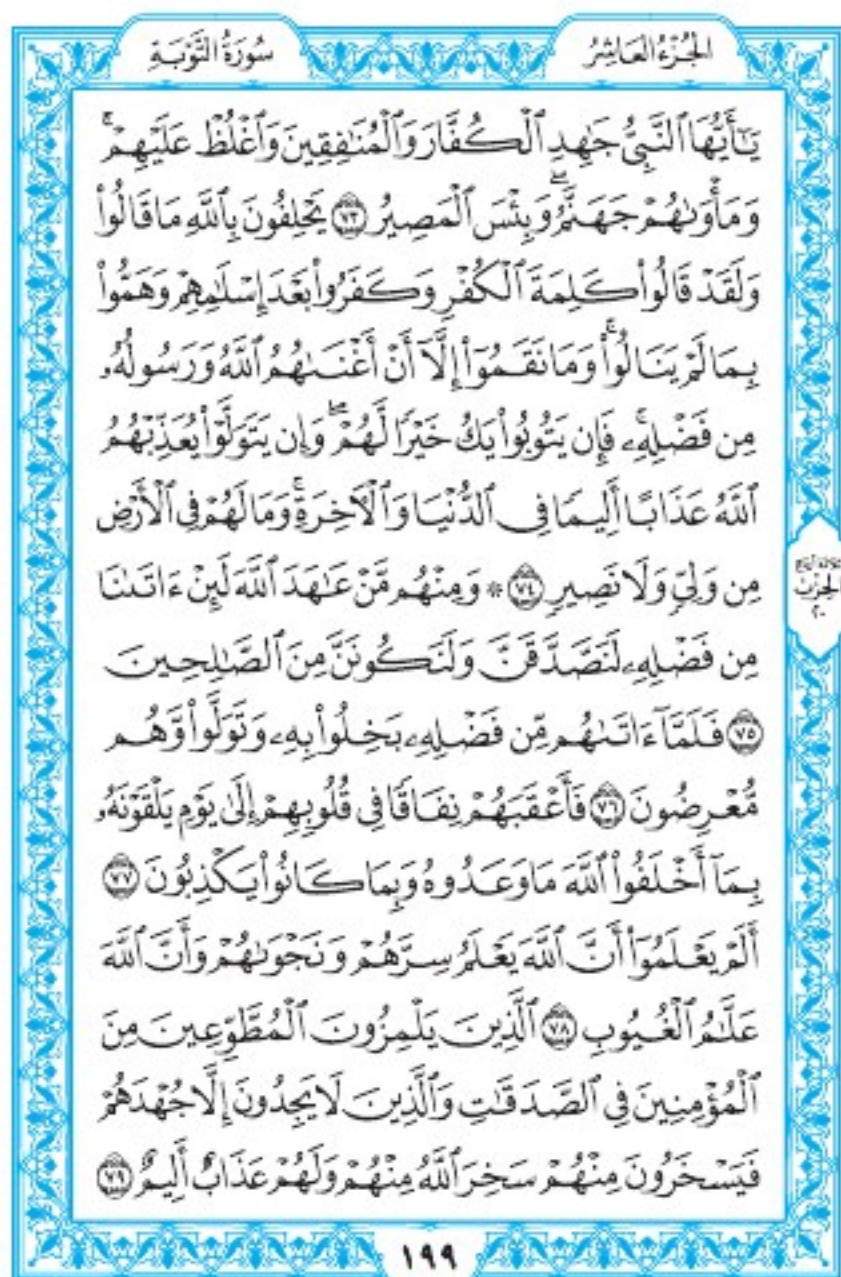 الجُزْءُ العَاشِرُ
سُورَةُ التَّوْبَةِ
يَـٰٓأَيُّهَا ٱلنَّبِىُّ جَـٰهِدِ ٱلْكُفَّارَ وَٱلْمُنَـٰفِقِينَ وَٱغْلُظْ عَلَيْهِمْ ۚ
وَمَأْوَىٰهُمْ جَهَنَّمُ ۖ وَبِئْسَ ٱلْمَصِيرُ ٧٣ يَحْلِفُونَ بِٱللَّهِ مَا قَالُوا۟
وَلَقَدْ قَالُوا۟ كَلِمَةَ ٱلْكُفْرِ وَكَفَرُوا۟ بَعْدَ إِسْلَـٰمِهِمْ وَهَمُّوا۟
بِمَا لَمْ يَنَالُوا۟ ۚ وَمَا نَقَمُوٓا۟ إِلَّآ أَنْ أَغْنَىٰهُمُ ٱللَّهُ وَرَسُولُهُۥ
مِن فَضْلِهِۦ ۚ فَإِن يَتُوبُوا۟ يَكُ خَيْرًا لَّهُمْ ۖ وَإِن يَتَوَلَّوْا۟ يُعَذِّبْهُمُ
ٱللَّهُ عَذَابًا أَلِيمًا فِى ٱلدُّنْيَا وَٱلْـَٔاخِرَةِ ۚ وَمَا لَهُمْ فِى ٱلْأَرْضِ
مِن وَلِىٍّ وَلَا نَصِيرٍ ٧٤ * وَمِنْهُم مَّنْ عَـٰهَدَ ٱللَّهَ لَئِنْ ءَاتَىٰنَا
مِن فَضْلِهِۦ لَنَصَّدَّقَنَّ وَلَنَكُونَنَّ مِنَ ٱلصَّـٰلِحِينَ
٧٥ فَلَمَّآ ءَاتَىٰهُم مِّن فَضْلِهِۦ بَخِلُوا۟ بِهِۦ وَتَوَلَّوا۟ وَّهُم
مُّعْرِضُونَ ٧٦ فَأَعْقَبَهُمْ نِفَاقًا فِى قُلُوبِهِمْ إِلَىٰ يَوْمِ يَلْقَوْنَهُۥ
بِمَآ أَخْلَفُوا۟ ٱللَّهَ مَا وَعَدُوهُ وَبِمَا كَانُوا۟ يَكْذِبُونَ ٧٧
أَلَمْ يَعْلَمُوٓا۟ أَنَّ ٱللَّهَ يَعْلَمُ سِرَّهُمْ وَنَجْوَىٰهُمْ وَأَنَّ ٱللَّهَ
عَلَّـٰمُ ٱلْغُيُوبِ ٧٨ ٱلَّذِينَ يَلْمِزُونَ ٱلْمُطَّوِّعِينَ مِنَ
ٱلْمُؤْمِنِينَ فِى ٱلصَّدَقَـٰتِ وَٱلَّذِينَ لَا يَجِدُونَ إِلَّا جُهْدَهُمْ
فَيَسْخَرُونَ مِنْهُمْ ۙ سَخِرَ ٱللَّهُ مِنْهُمْ وَلَهُمْ عَذَابٌ أَلِيمٌ ٧٩
ثلاثة أرباع
الحزب
٢٠
١٩٩